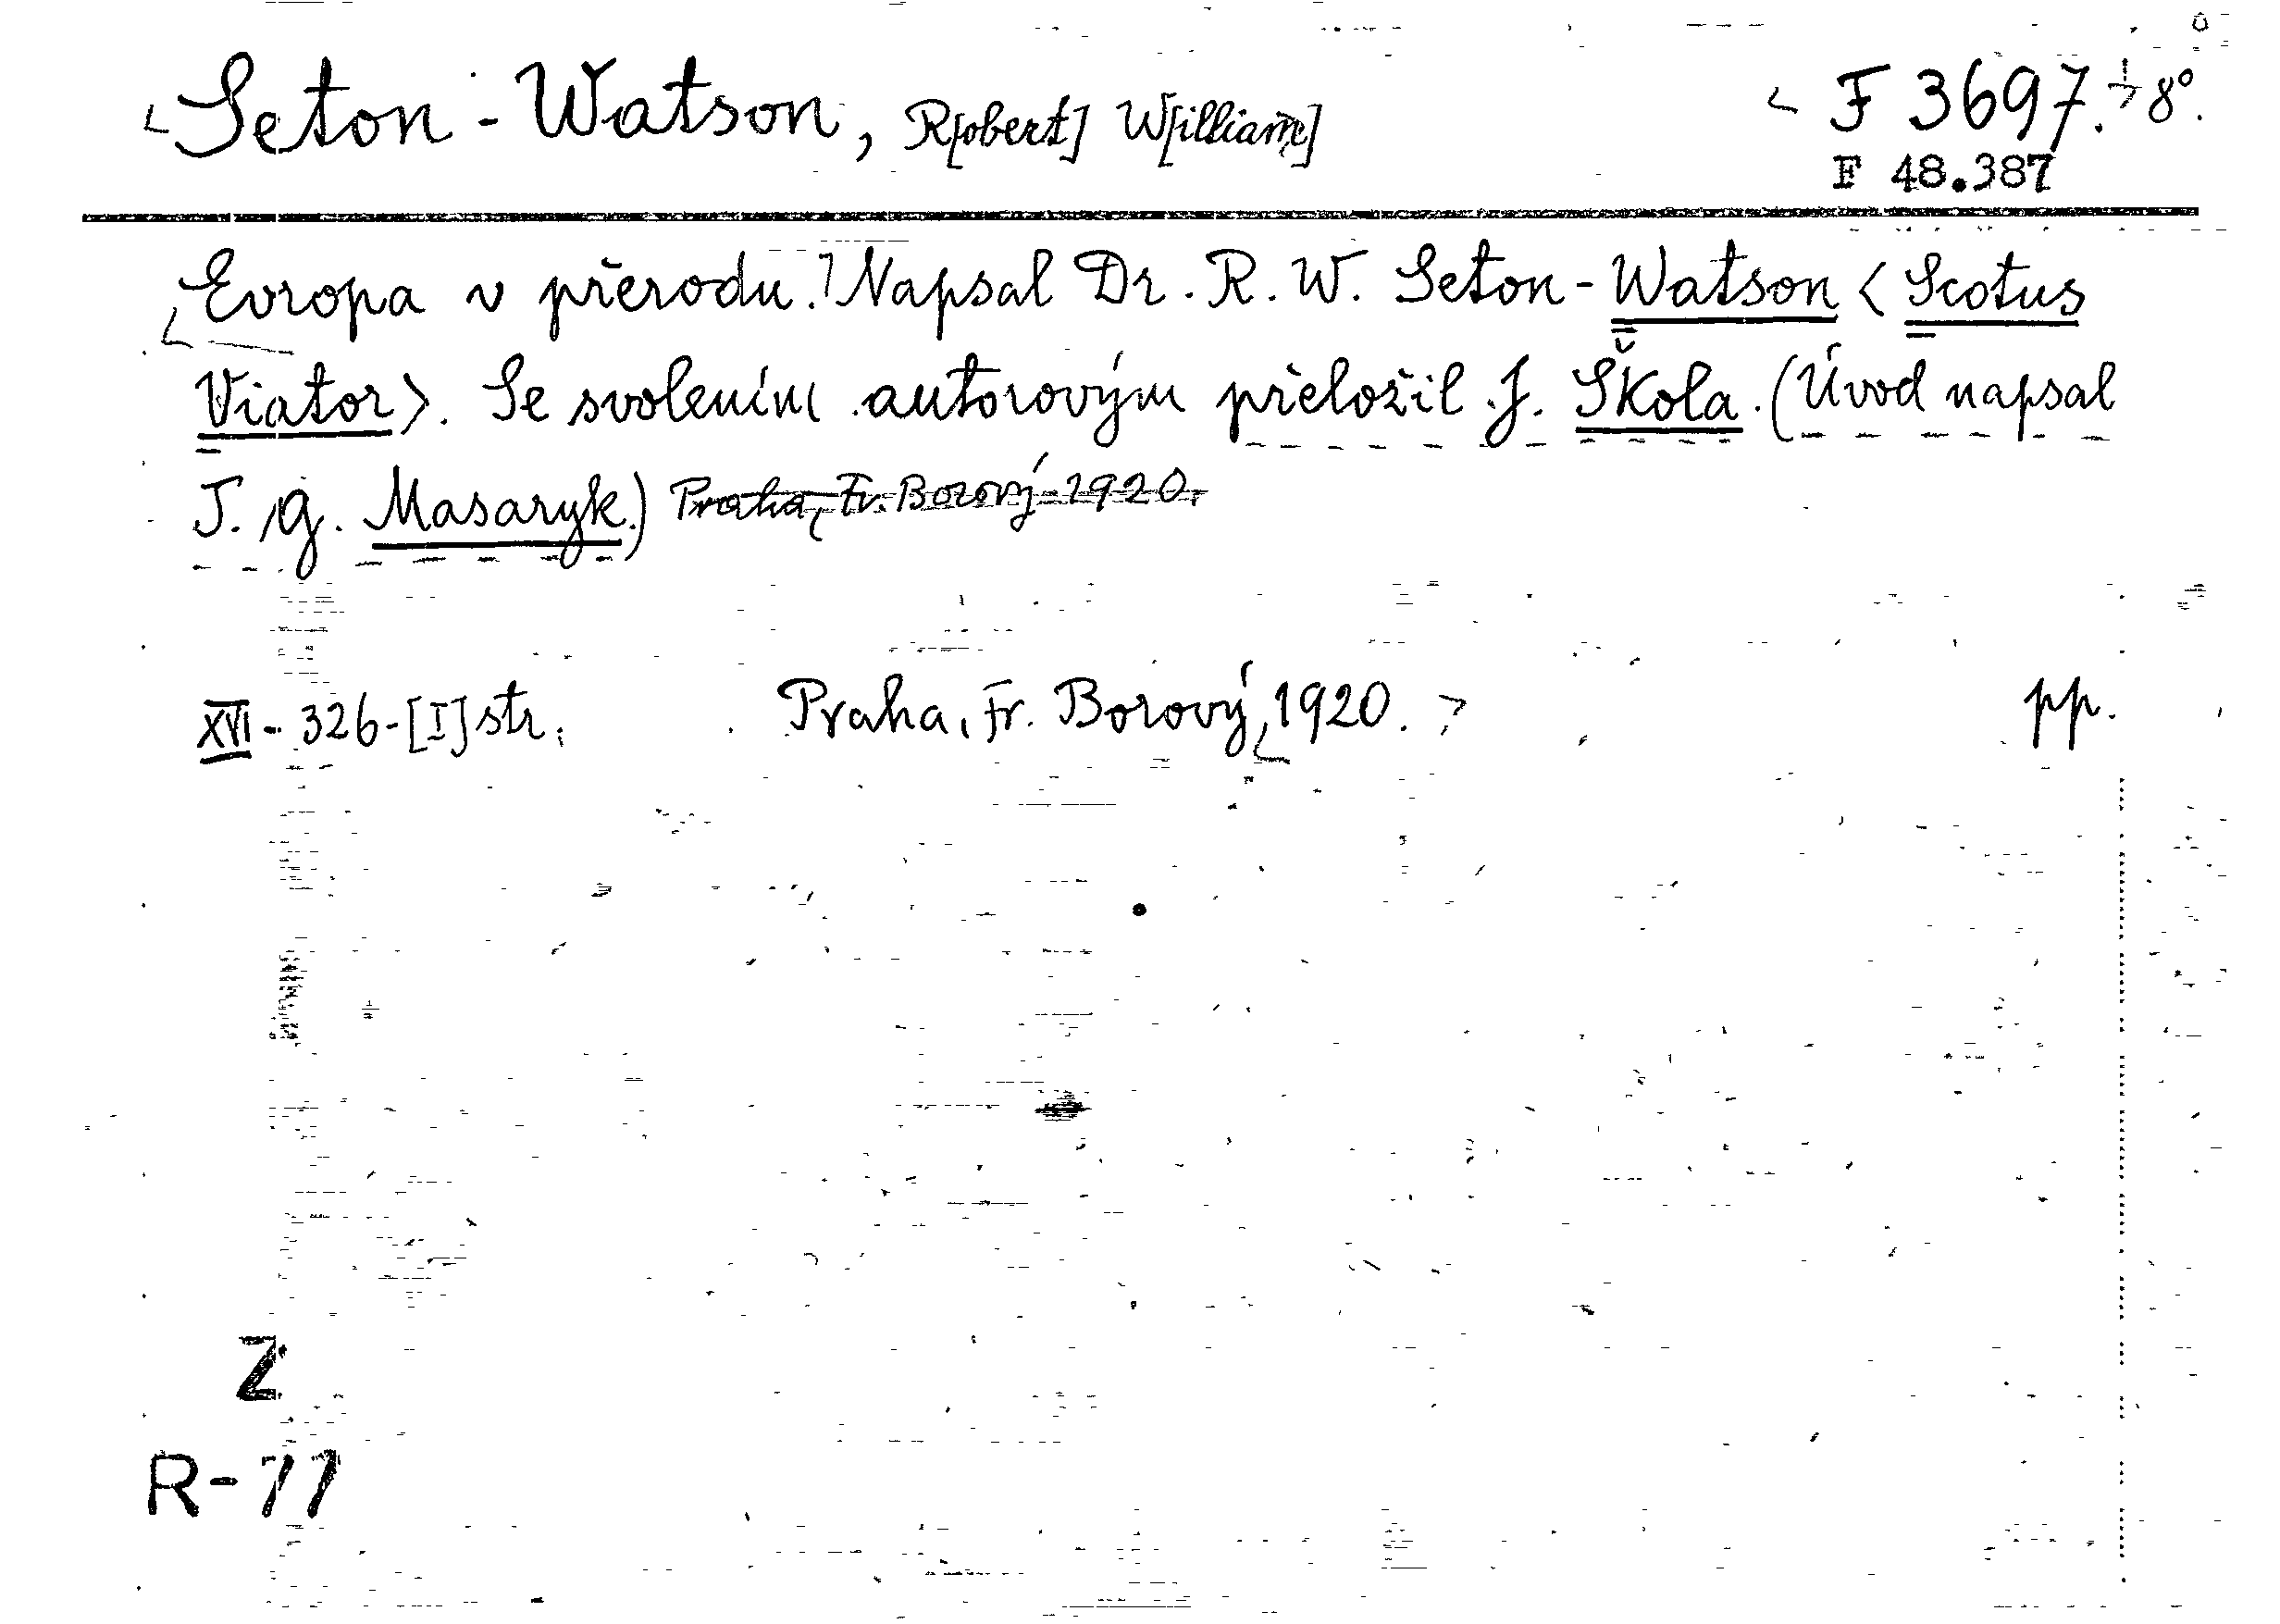 Seton-Watson, R[obert] W[illiam]
F 3697. 8°.
F 48.387
Evropa v přerodu. Napsal Dr. R. W. Seton-Watson <Scotus
Viator>. Se svolením autorovým přeložil J. Škola. (Úvod napsal
T. G. Masaryk.) Praha, Fr. Borový 1920.
XVI - 326-[I] str. Praha, Fr. Borový, 1920. pp.
Z
R-77